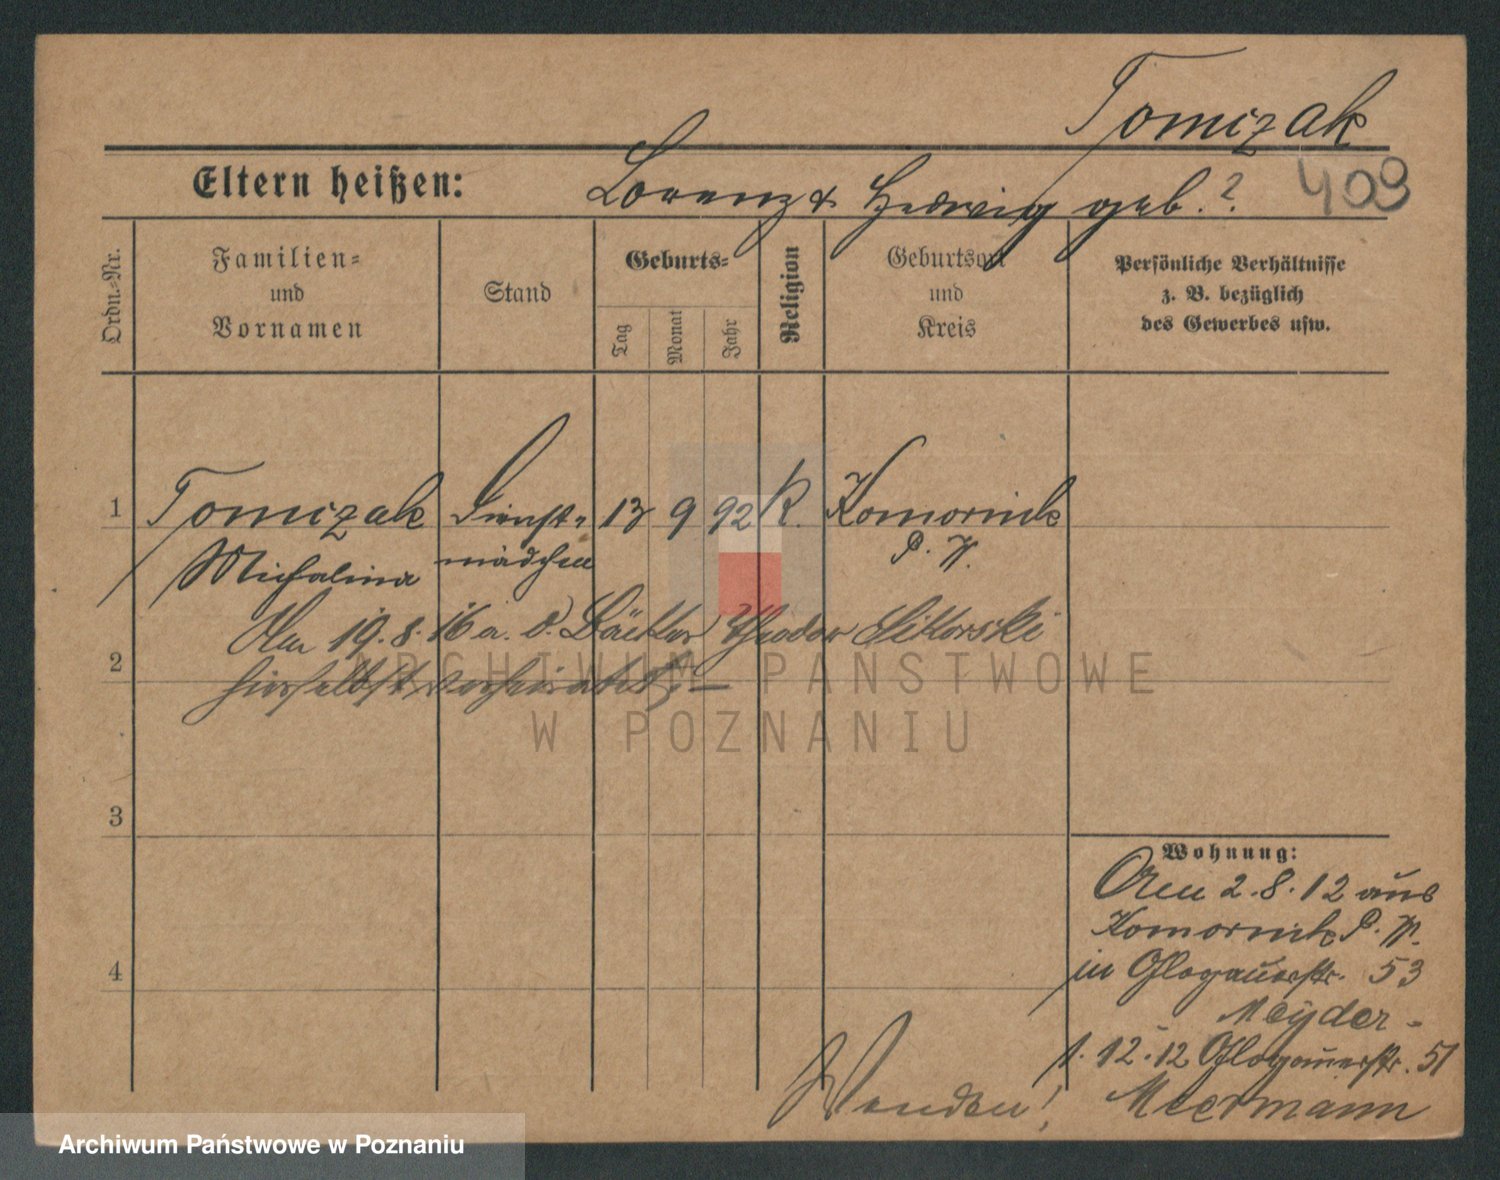 Tomczak
409
Eltern heißen: Lorenz & Hedwig geb. ?
Ordn.=Nr.
Familien=
und
Vornamen
Stand
Geburts=
Tag
Monat
Jahr
Religion
Geburtsort
und
Kreis
Persönliche Verhältnisse
z. B. bezüglich
des Gewerbes usw.
1 Tomczak Dienst= 13 9 92 K. Komornik
Michalina mädchen P. W.
Am 19. 8. 16 a. d. Bäcker Theodor Sikorski
2
hierselbst verheiratet. —
ARCHIWUM PAŃSTWOWE
W POZNANIU
3
4
Wohnung:
Am 2. 8. 12 aus
Komornik P. W.
in Glogauerstr. 53
Meyder -
1. 12. 12 Glogauerstr. 51
Meermann
Wenden!
Archiwum Państwowe w Poznaniu